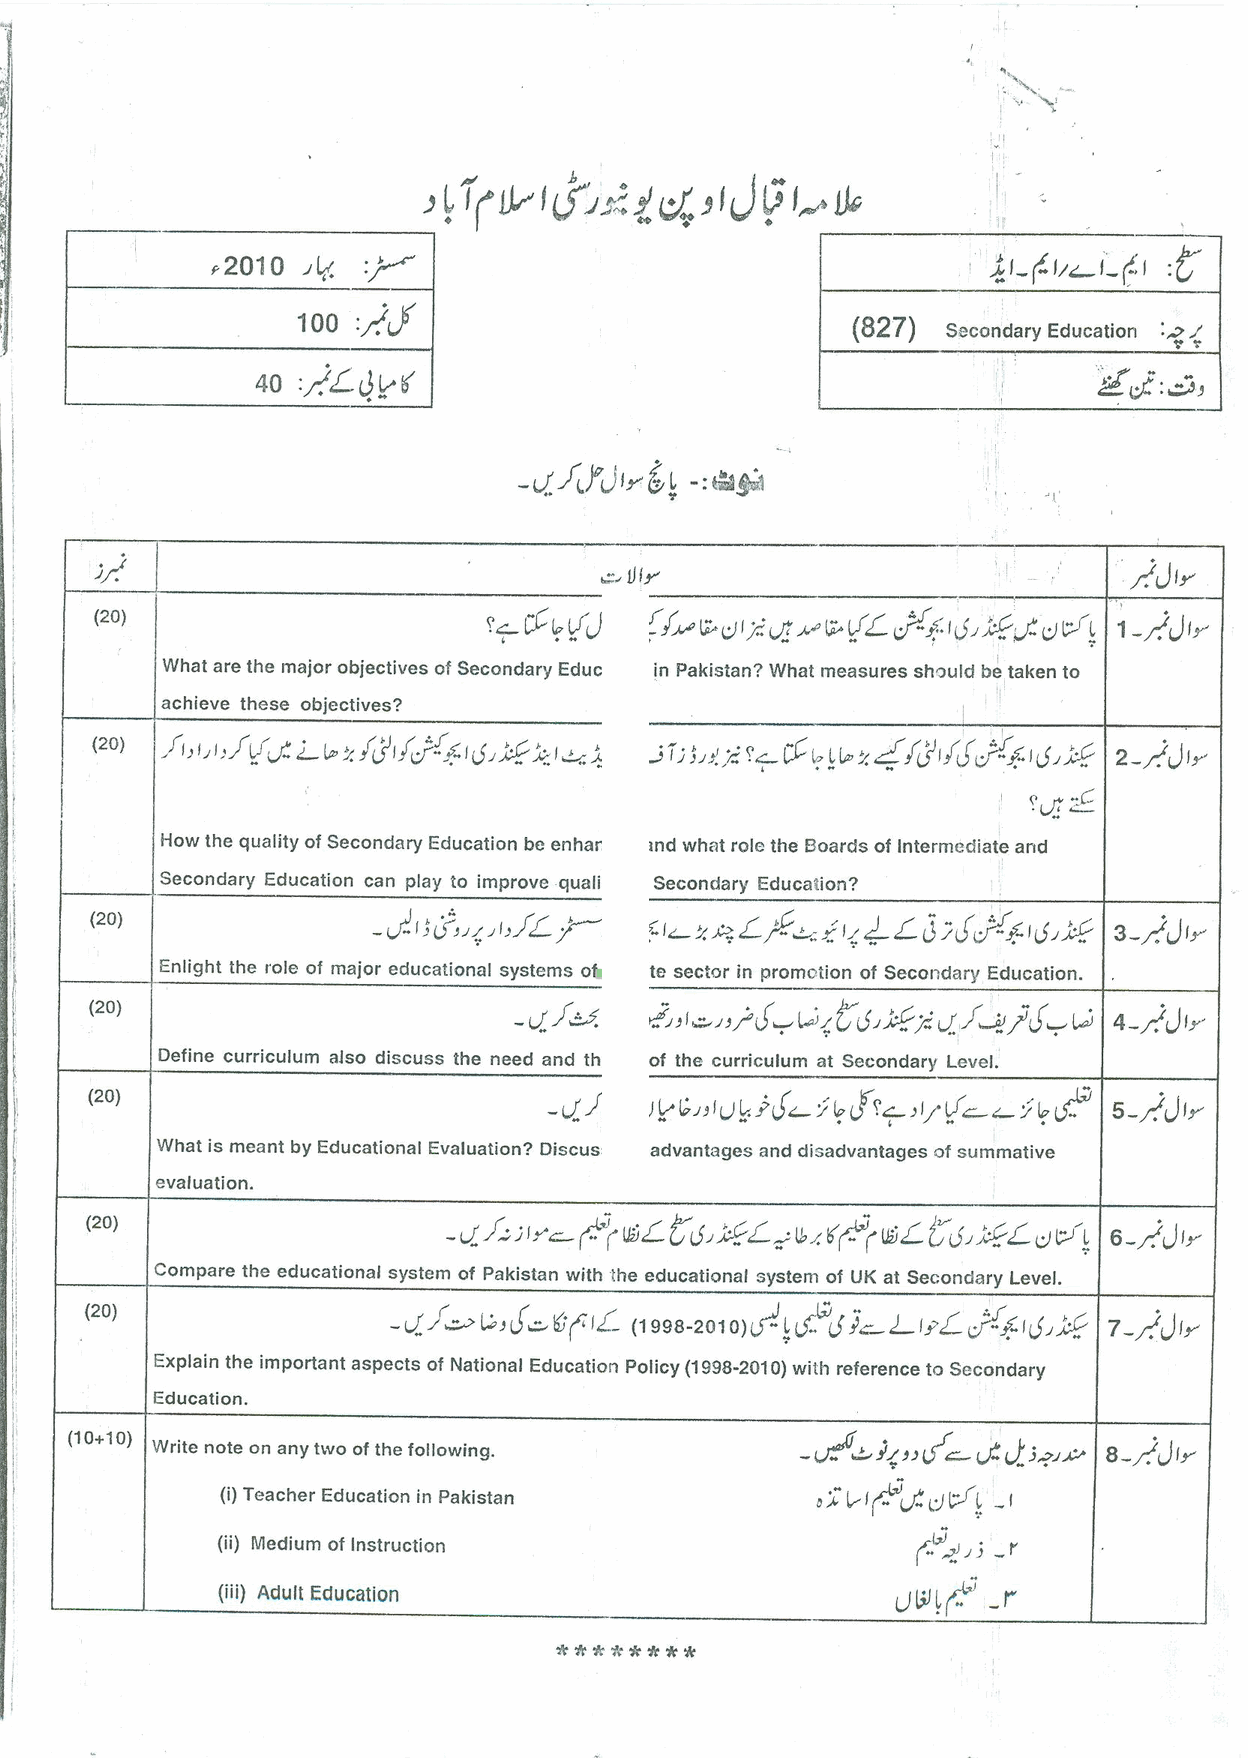 علامہ اقبال اوپن یونیورسٹی اسلام آباد
سطح: ایم۔اے/ایم۔ایڈ
سمسٹر: بہار 2010ء
پرچہ: Secondary Education (827)
کل نمبر: 100
وقت: تین گھنٹے
کامیابی کے نمبر: 40
نوٹ:- پانچ سوال حل کریں۔
سوال نمبر سوالات نمبرز
سوال نمبر۔1 پاکستان میں سیکنڈری ایجوکیشن کے کیا مقاصد ہیں نیز ان مقاصد کو کیا جا سکتا ہے؟ (20)
What are the major objectives of Secondary Educ in Pakistan? What measures should be taken to
achieve these objectives?
سوال نمبر۔2 سیکنڈری ایجوکیشن کی کوالٹی کو کیسے بڑھایا جا سکتا ہے؟ نیز بورڈز آف اینڈ سیکنڈری ایجوکیشن کوالٹی کو بڑھانے میں کیا کردار ادا کر (20)
سکتے ہیں؟
How the quality of Secondary Education be enhan and what role the Boards of Intermediate and
Secondary Education can play to improve quali Secondary Education?
سوال نمبر۔3 سیکنڈری ایجوکیشن کی ترقی کے لیے پرائیویٹ سیکٹر کے چند بڑے سسٹمز کے کردار پر روشنی ڈالیں۔ (20)
Enlight the role of major educational systems of te sector in promotion of Secondary Education.
سوال نمبر۔4 نصاب کی تعریف کریں نیز سیکنڈری سطح پر نصاب کی ضرورت اور بحث کریں۔ (20)
Define curriculum also discuss the need and th of the curriculum at Secondary Level.
سوال نمبر۔5 تعلیمی جائزے سے کیا مراد ہے؟ کلی جائزے کی خوبیاں اور کریں۔ (20)
What is meant by Educational Evaluation? Discus advantages and disadvantages of summative
evaluation.
سوال نمبر۔6 پاکستان کے سیکنڈری سطح کے نظام تعلیم کا برطانیہ کے سیکنڈری سطح کے نظام تعلیم سے موازنہ کریں۔ (20)
Compare the educational system of Pakistan with the educational system of UK at Secondary Level.
سوال نمبر۔7 سیکنڈری ایجوکیشن کے حوالے سے قومی تعلیمی پالیسی (1998-2010) کے اہم نکات کی وضاحت کریں۔ (20)
Explain the important aspects of National Education Policy (1998-2010) with reference to Secondary
Education.
سوال نمبر۔8 مندرجہ ذیل میں سے کسی دو پر نوٹ لکھیں۔ Write note on any two of the following. (10+10)
۱۔ پاکستان میں تعلیم اساتذہ (i) Teacher Education in Pakistan
۲۔ ذریعہ تعلیم (ii) Medium of Instruction
۳۔ تعلیم بالغاں (iii) Adult Education
********